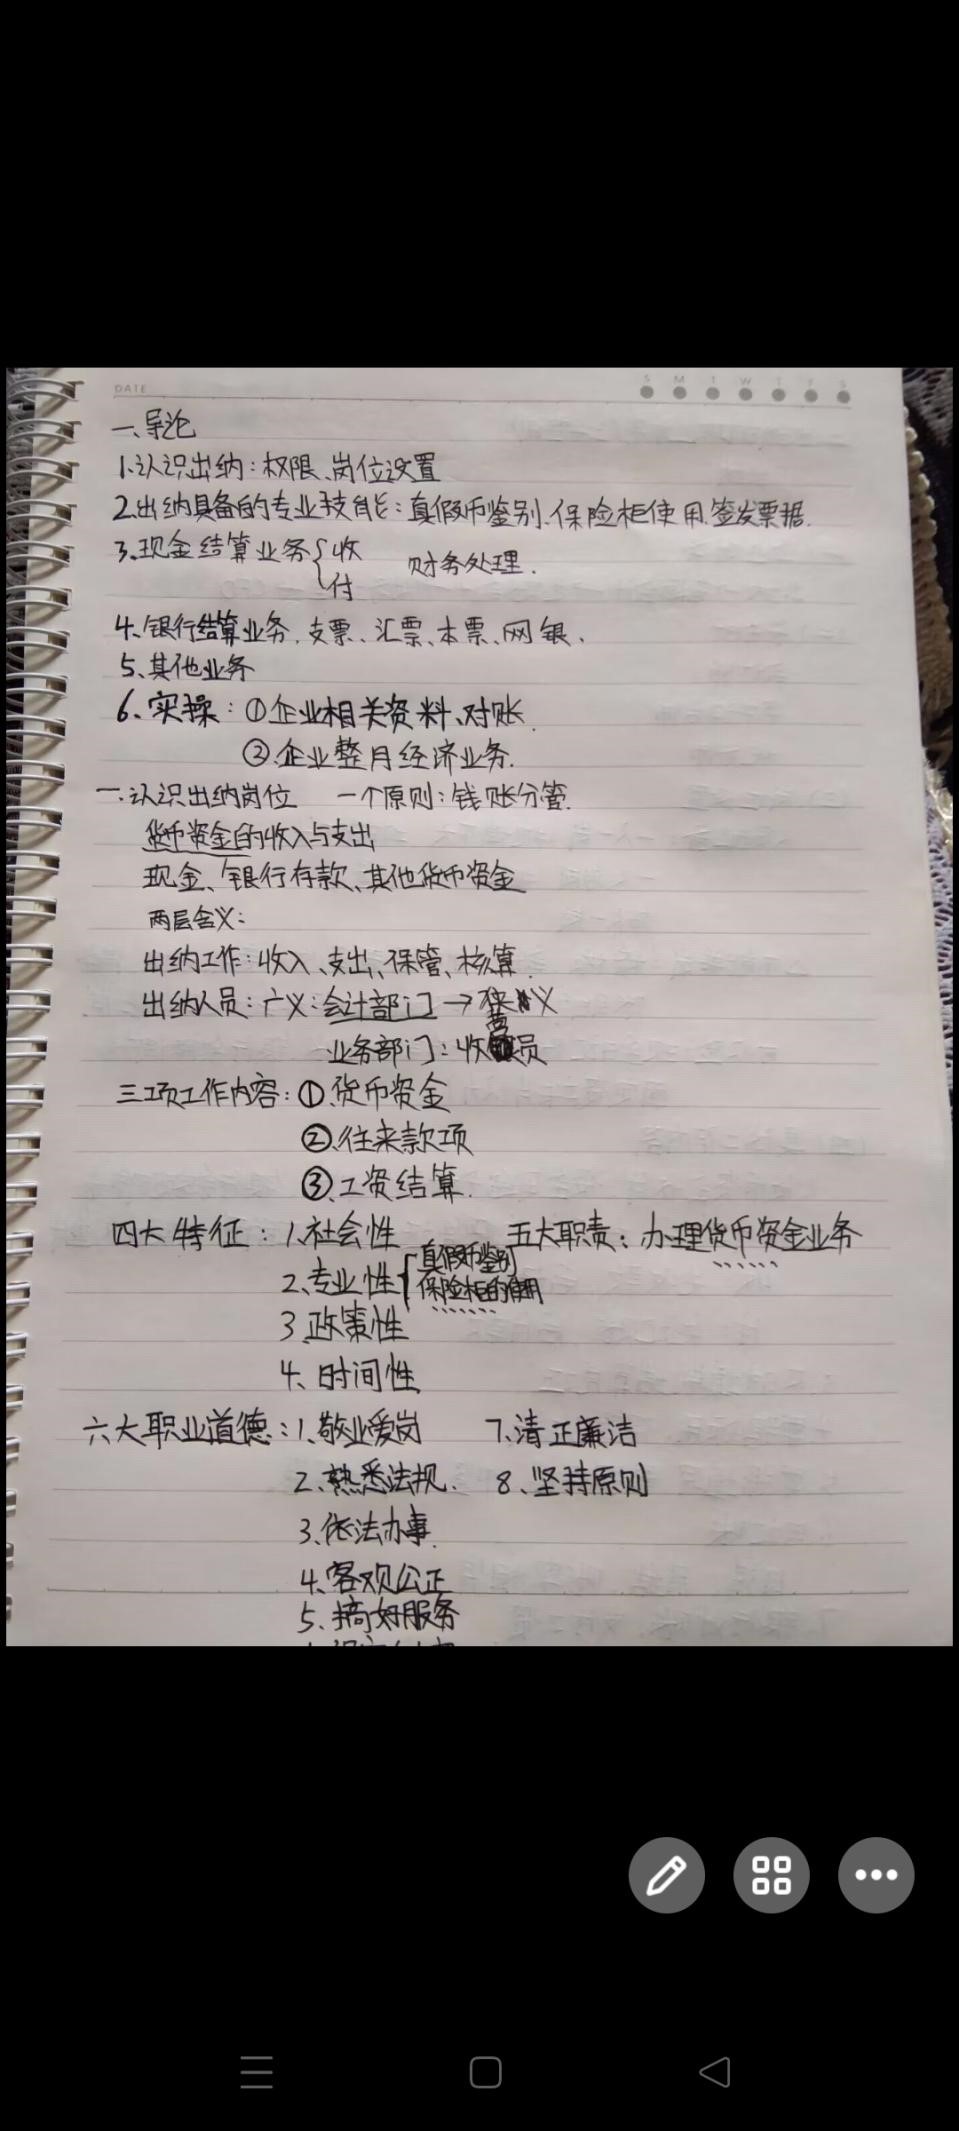 DATE
S M T W T F S
一、导论
1.认识出纳：权限、岗位设置
2.出纳具备的专业技能：真假币鉴别、保险柜使用、签发票据.
3.现金结算业务{收 财务处理.
付
4、银行结算业务、支票、汇票、本票、网银、
5、其他业务
6、实操：①企业相关资料、对账.
②.企业整月经济业务.
一.认识出纳岗位 一个原则：钱账分管.
货币资金的收入与支出
现金、银行存款、其他货币资金
两层含义：
出纳工作：收入、支出、保管、核算.
出纳人员：广义：会计部门→狭义
业务部门：收营员
三项工作内容：①.货币资金
②.往来款项
③.工资结算.
四大特征：1.社会性 五大职责：办理货币资金业务
2.专业性{真假币鉴别
保险柜的使用
3.政策性
4、时间性
六大职业道德：1.敬业爱岗 7.清正廉洁
2.熟悉法规. 8、坚持原则
3.依法办事.
4.客观公正
5.搞好服务